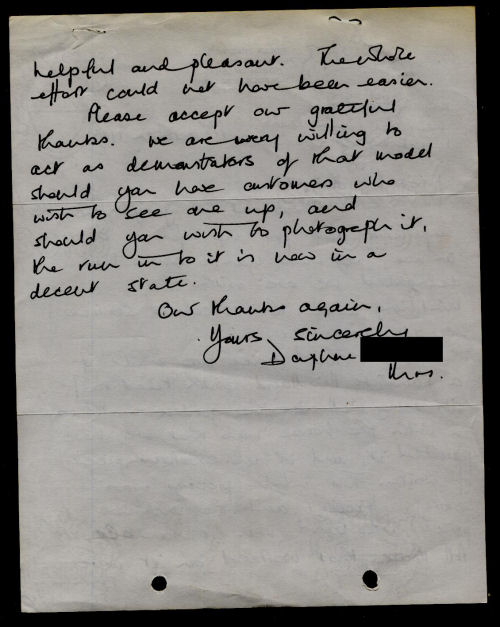 helpful and pleasant. The whole
effort could not have been easier.
Please accept our grateful
thanks. We are very willing to
act as demonstrators of that model
should you have customers who
wish to see one up, and
should you wish to photograph it,
the run in to it is now in a
decent state.
Our thanks again,
Yours sincerely
Daphne
Mrs.